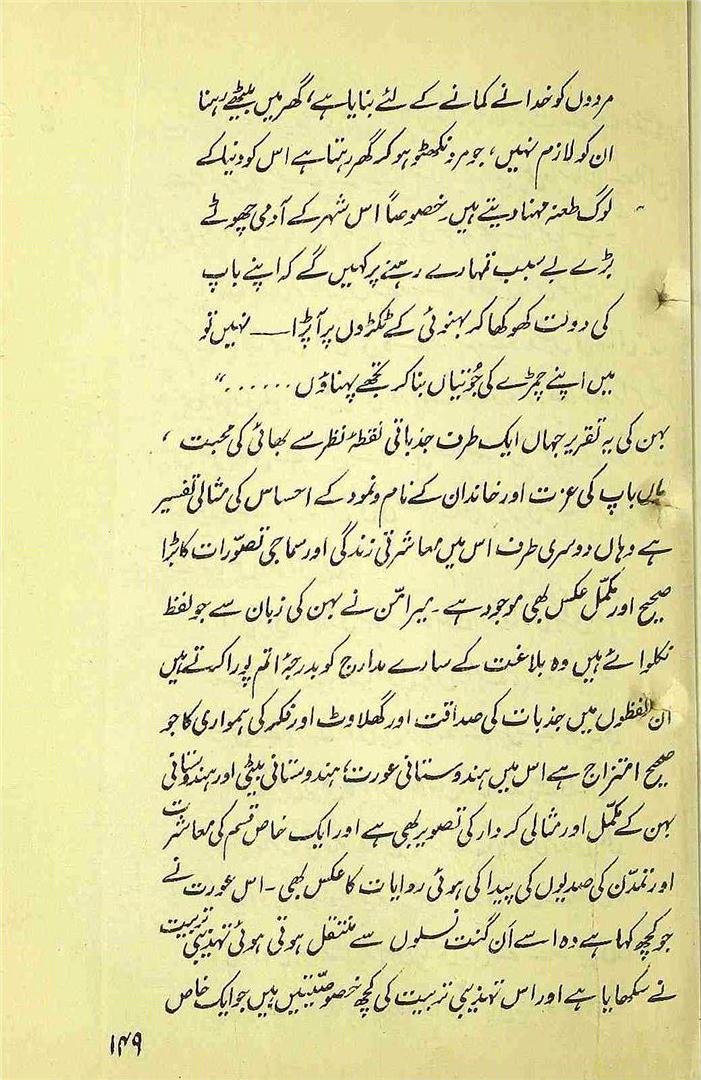 مردوں کو خدا نے کمانے کے لئے بنایا ہے، گھر میں بیٹھے رہنا
ان کو لازم نہیں، جو مرد نکھٹو ہو کر گھر رہتا ہے اس کو دنیا کے
لوگ طعنہ مہنا دیتے ہیں۔ خصوصاً اس شہر کے آدمی چھوٹے
بڑے بے سبب تمہارے رہنے پر کہیں گے کہ اپنے باپ
کی دولت کھو کھا کر بہنوئی کے ٹکڑوں پر آ پڑا — نہیں تو
میں اپنے چمڑے کی جُوتیاں بنا کر تجھے پہناؤں ......“
بہن کی یہ تقریر جہاں ایک طرف جذباتی نقطۂ نظر سے بھائی کی محبت ،
ماں باپ کی عزت اور خاندان کے نام و نمود کے احساس کی مثالی تفسیر
ہے وہاں دوسری طرف اس میں معاشرتی زندگی اور سماجی تصوّرات کا بڑا
صحیح اور مکمّل عکس بھی موجود ہے۔ میرامّن نے بہن کی زبان سے جو لفظ
نکلوائے ہیں وہ بلاغت کے سارے مدارج کو بدرجۂ اتم پورا کرتے ہیں
ان لفظوں میں جذبات کی صداقت اور گھلاوٹ اور فکر کی ہمواری کا جو
صحیح امتزاج ہے اس میں ہندوستانی عورت، ہندوستانی بیٹی اور ہندوستانی
بہن کے مکمّل اور مثالی کردار کی تصویر بھی ہے اور ایک خاص قسم کی معاشرت
اور تمدّن کی صدیوں کی پیدا کی ہوئی روایات کا عکس بھی۔ اس عورت نے
جو کچھ کہا ہے وہ اسے اَن گنت نسلوں سے منتقل ہوتی ہوئی تہذیبی تربیت
نے سکھایا ہے اور اس تہذیبی تربیت کی کچھ خصوصیّتیں ہیں جو ایک خاص
۱۴۹